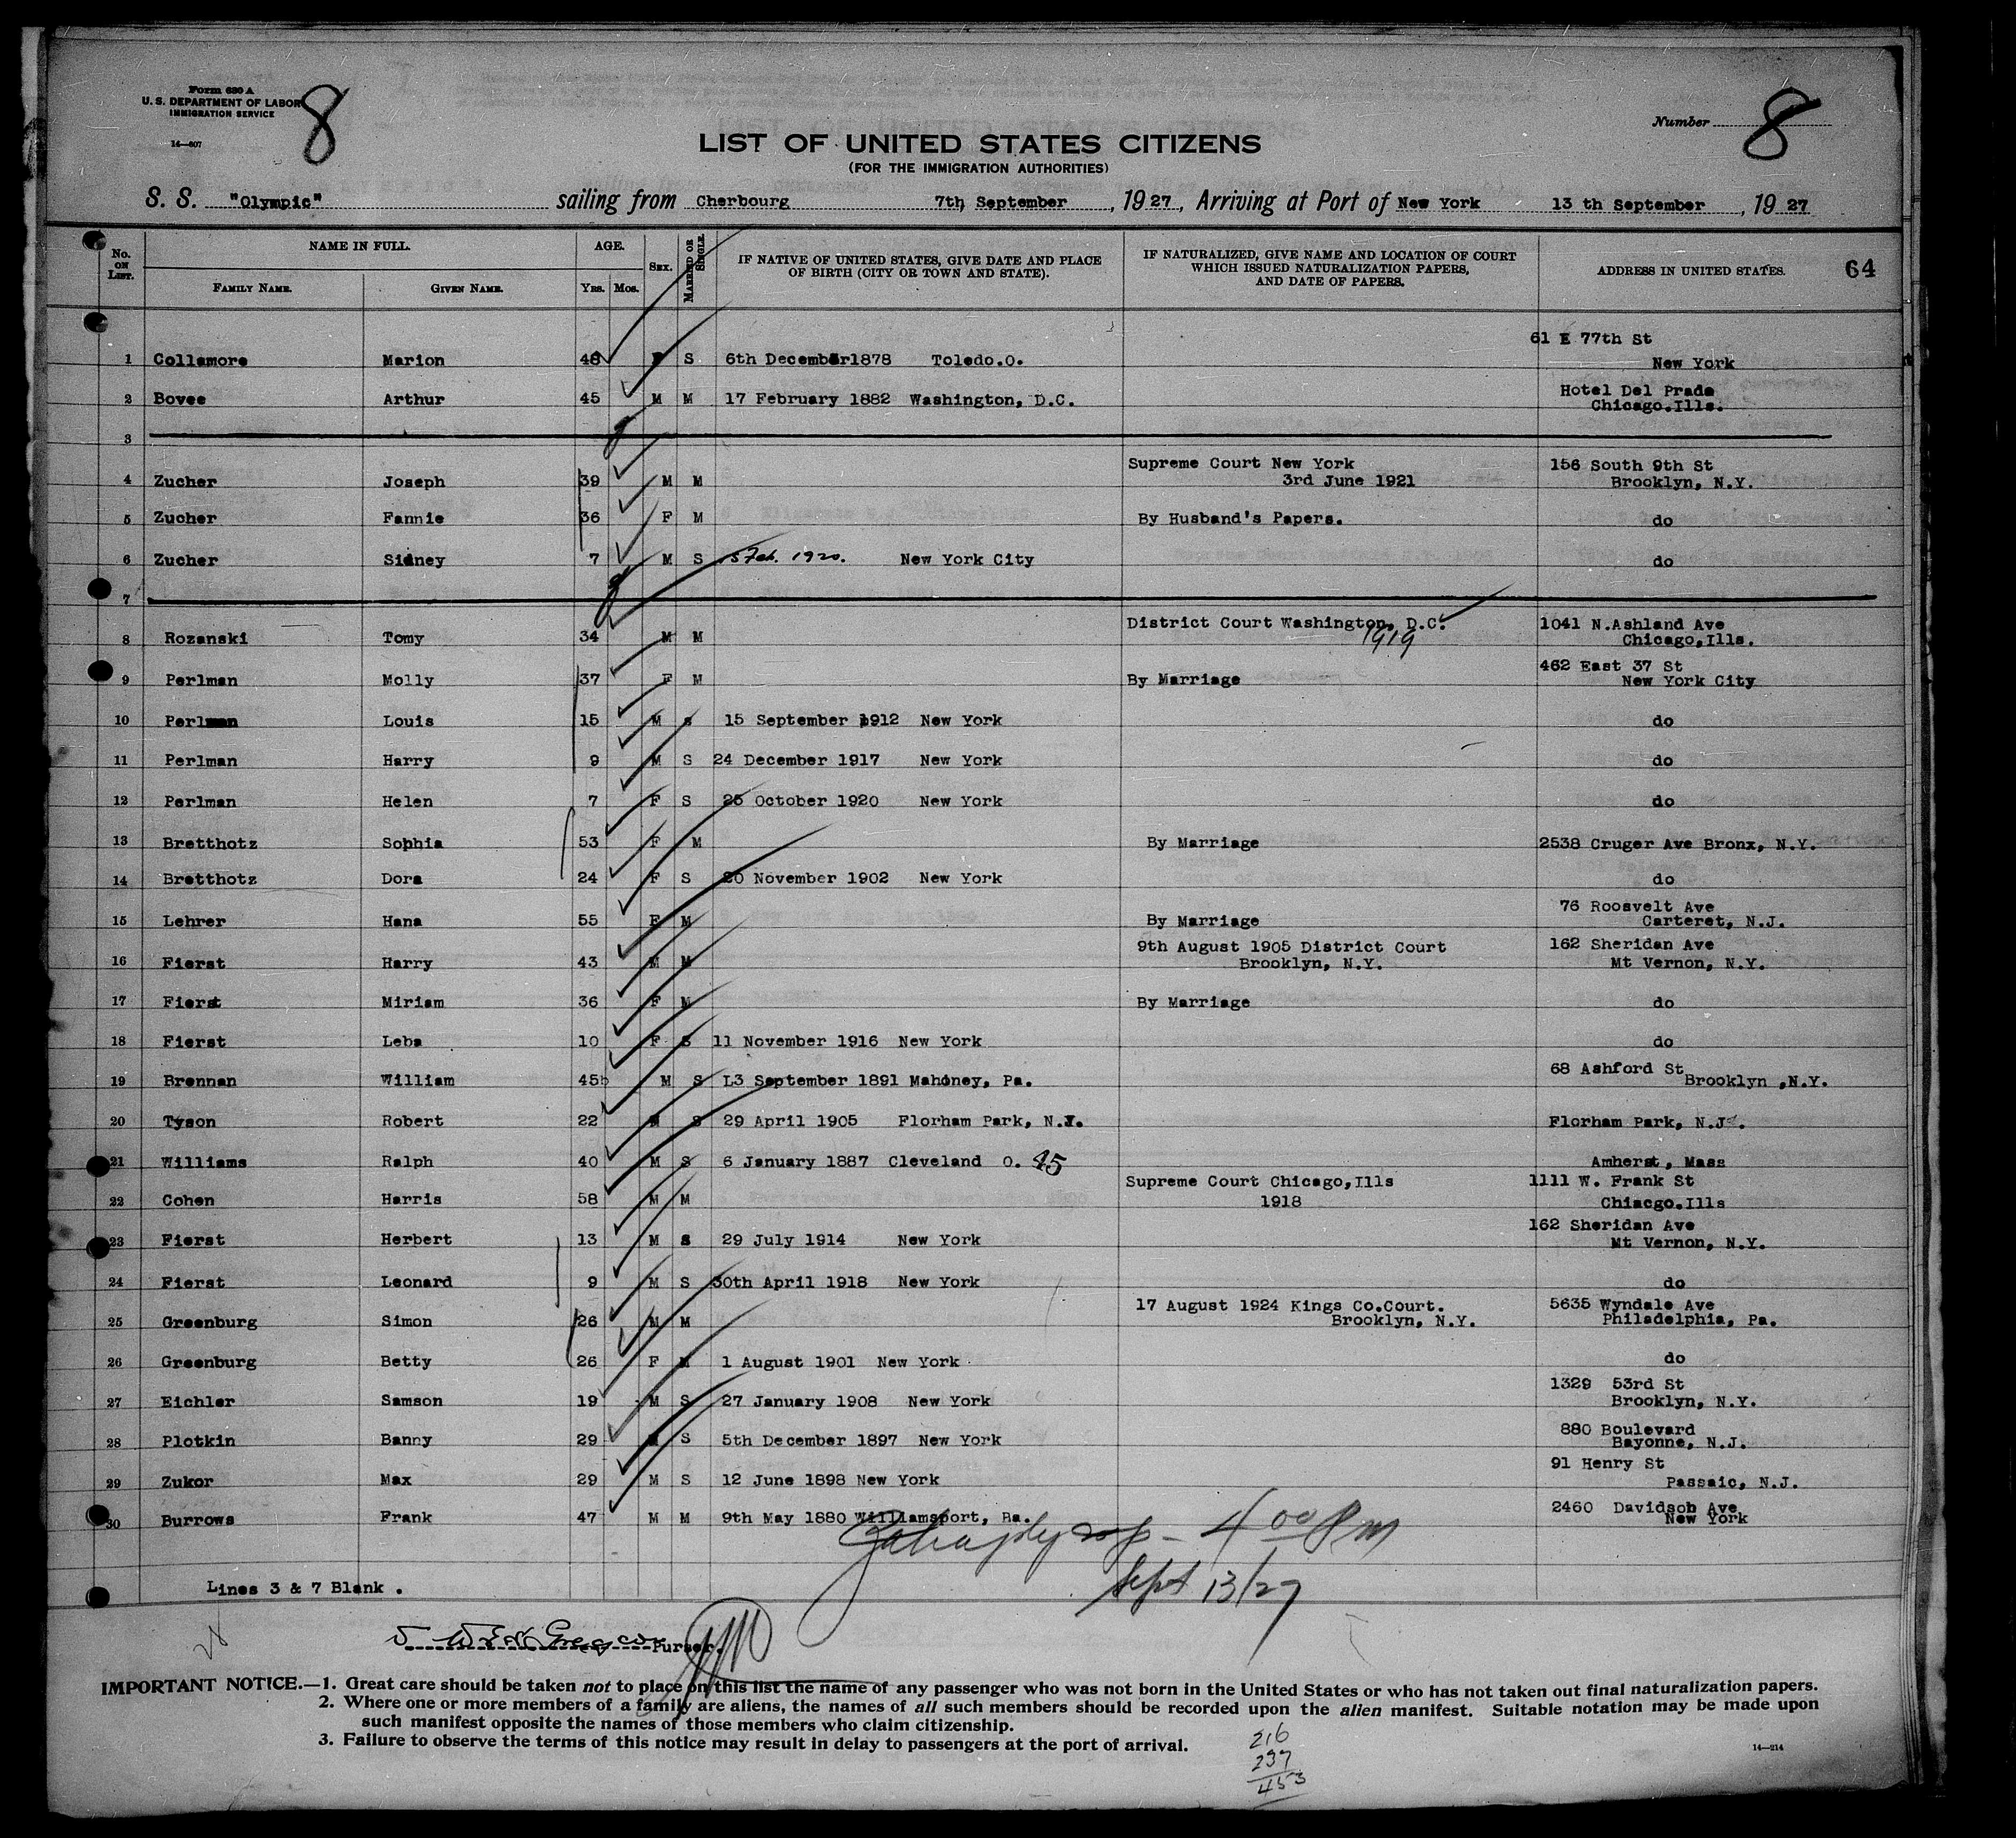 Form 630 A
U. S. DEPARTMENT OF LABOR
IMMIGRATION SERVICE
14—607
8
Number 8
LIST OF UNITED STATES CITIZENS
(FOR THE IMMIGRATION AUTHORITIES)
S. S. "Olympic" sailing from Cherbourg 7th September, 1927, Arriving at Port of New York 13 th September, 1927
No. ON LIST. NAME IN FULL. AGE. SEX. MARRIED OR SINGLE. IF NATIVE OF UNITED STATES, GIVE DATE AND PLACE OF BIRTH (CITY OR TOWN AND STATE). IF NATURALIZED, GIVE NAME AND LOCATION OF COURT WHICH ISSUED NATURALIZATION PAPERS, AND DATE OF PAPERS. ADDRESS IN UNITED STATES. 64
FAMILY NAME. GIVEN NAME. YRS. MOS.
61 E 77th St
1 Collamore Marion 48 F S 6th December1878 Toledo.O. New York
2 Bovee Arthur 45 M M 17 February 1882 Washington, D.C. Hotel Del Prada
Chicago.Ills.
3
4 Zucher Joseph 39 M M Supreme Court New York 3rd June 1921 156 South 9th St
Brooklyn, N.Y.
5 Zucher Fannie 36 F M By Husband's Papers. do
6 Zucher Sidney 7 M S 5 Feb. 1920. New York City do
7
8 Rozanski Tomy 34 M M District Court Washington, D.C. 1919 1041 N.Ashland Ave
Chicago,Ills.
9 Perlman Molly 37 F M By Marriage 462 East 37 St
New York City
10 Perlman Louis 15 M s 15 September 1912 New York do
11 Perlman Harry 9 M S 24 December 1917 New York do
12 Perlman Helen 7 F S 25 October 1920 New York do
13 Bretthotz Sophia 53 F M By Marriage 2538 Cruger Ave Bronx, N.Y.
14 Bretthotz Dora 24 F S 20 November 1902 New York do
15 Lehrer Hana 55 F M By Marriage 76 Roosvelt Ave
Carteret, N.J.
16 Fierst Harry 43 M M 9th August 1905 District Court Brooklyn, N.Y. 162 Sheridan Ave
Mt Vernon, N.Y.
17 Fierst Miriam 36 F M By Marriage do
18 Fierst Leba 10 F S 11 November 1916 New York do
19 Brennan William 45 M S L3 September 1891 Mahoney, Pa. 68 Ashford St
Brooklyn ,N.Y.
20 Tyson Robert 22 M S 29 April 1905 Florham Park, N.J. Florham Park, N.J.
21 Williams Ralph 40 M S 6 January 1887 Cleveland O. 45 Amherst, Mass
22 Cohen Harris 58 M M Supreme Court Chicago,Ills 1918 1111 W. Frank St
Chiacgo.Ills
23 Fierst Herbert 13 M S 29 July 1914 New York 162 Sheridan Ave
Mt Vernon, N.Y.
24 Fierst Leonard 9 M S 30th April 1918 New York do
25 Greenburg Simon 26 M M 17 August 1924 Kings Co.Court. Brooklyn, N.Y. 5635 Wyndale Ave
Philadelphia, Pa.
26 Greenburg Betty 26 F M 1 August 1901 New York do
27 Eichler Samson 19 M S 27 January 1908 New York 1329 53rd St
Brooklyn, N.Y.
28 Plotkin Banny 29 M S 5th December 1897 New York 880 Boulevard
Bayonne, N.J.
29 Zukor Max 29 M S 12 June 1898 New York 91 Henry St
Passaic, N.J.
30 Burrows Frank 47 M M 9th May 1880 Williamsport, Pa. 2460 Davidson Ave
New York
4 00 Pm
Sept 13/27
Lines 3 & 7 Blank .
Purser.
IMPORTANT NOTICE.—1. Great care should be taken not to place on this list the name of any passenger who was not born in the United States or who has not taken out final naturalization papers.
2. Where one or more members of a family are aliens, the names of all such members should be recorded upon the alien manifest. Suitable notation may be made upon
such manifest opposite the names of those members who claim citizenship.
3. Failure to observe the terms of this notice may result in delay to passengers at the port of arrival.
216
237
453
14—214